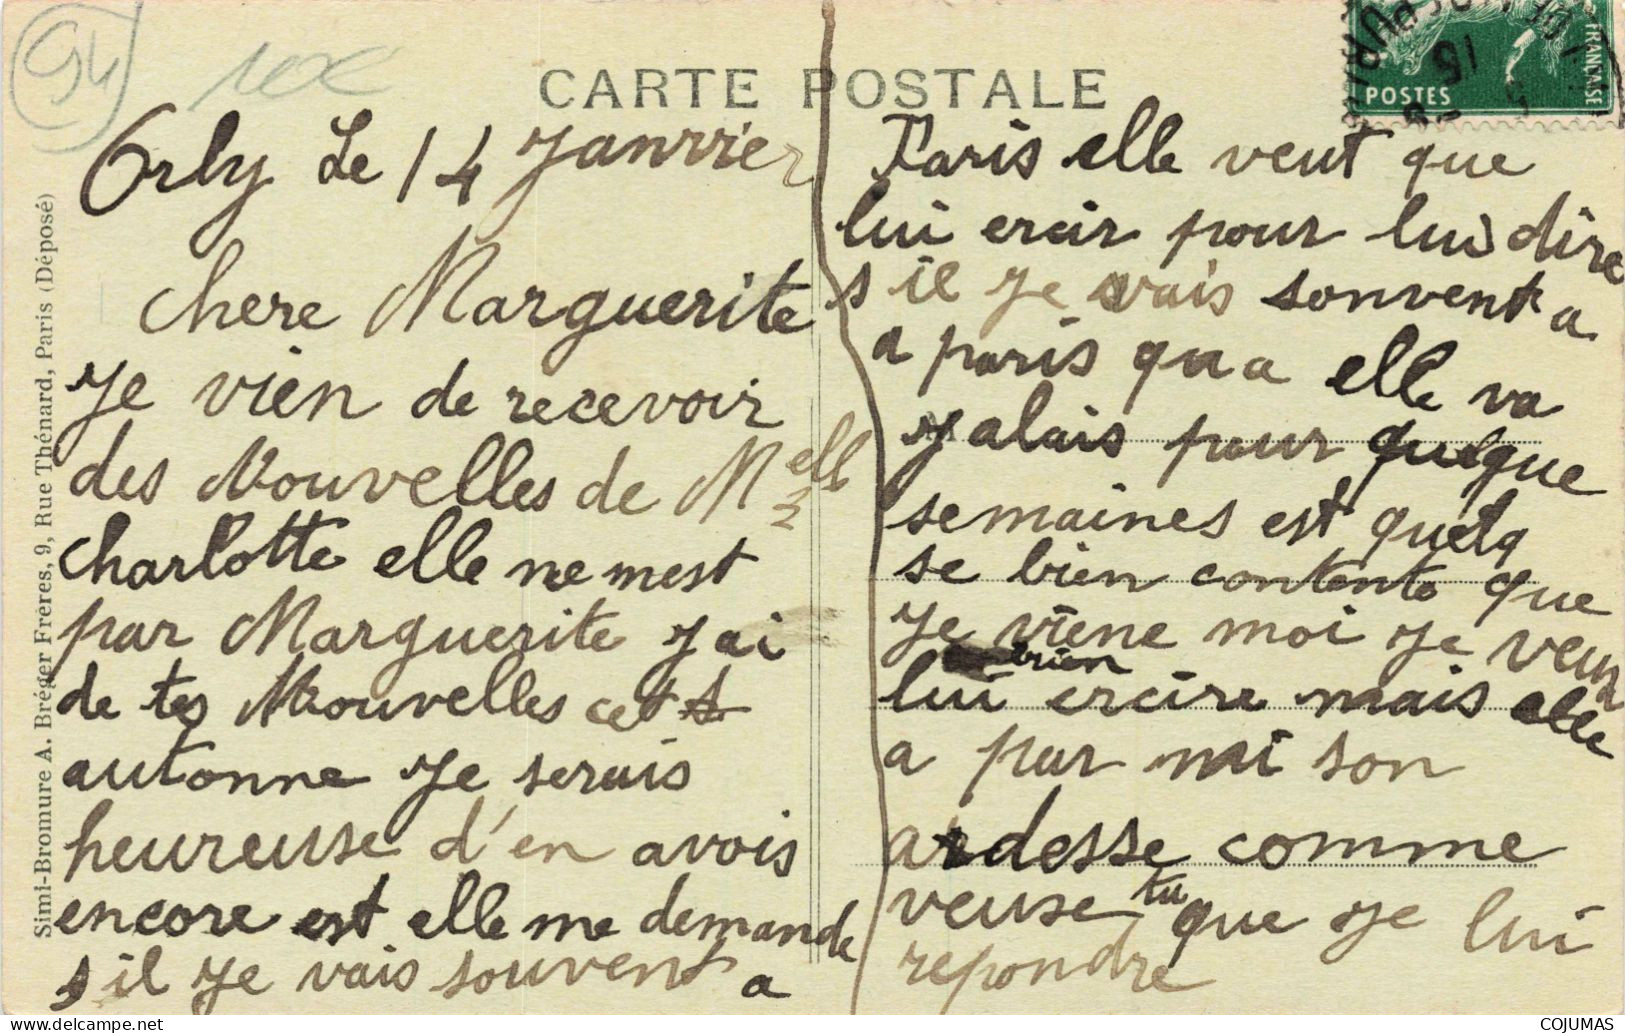 94
10€
CARTE POSTALE
POSTES
FRANÇAISE
15
Simi-Bromure A. Bréger Frères, 9, Rue Thénard, Paris (Déposé)
Orly Le 14 Janvrier
chere Marguerite
Je vien de recevoir
des Nouvelles de Melle
charlotte elle ne mest
par Marguerite J ai
de tes Nouvelles cet
autonne Je serais
heureuse d'en avois
encore est elle me demande
s il Je vais souvent a
Paris elle veut que
lui ercir pour lui dire
s il Je vais sonvent a
a paris qu a elle va
y alais pour quelque
semaines est quelq
se bien contente que
Je viene moi Je veux
lui bien ercire mais elle
a par mi son
adesse comme
veuse tu que Je lui
repondre
COJUMAS